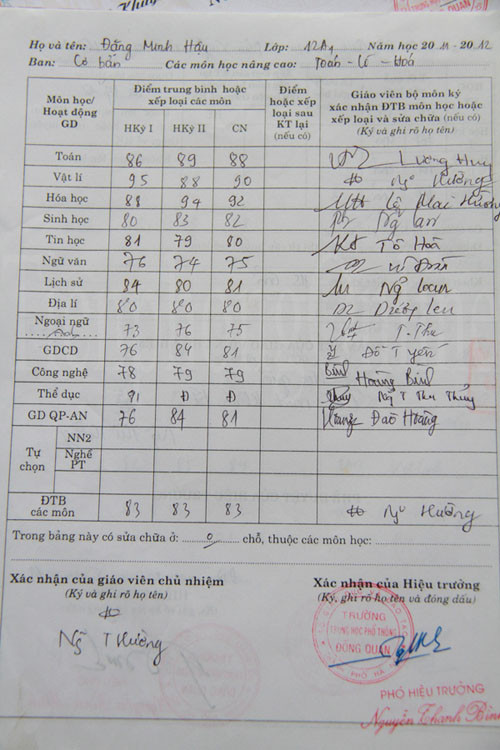 Họ và tên: Đặng Minh Hậu Lớp: 12A1 Năm học 2011 - 2012
Ban: Cơ bản Các môn học nâng cao: Toán - Lí - Hoá
Môn học/ Hoạt động GD
Điểm trung bình hoặc xếp loại các môn
HKỳ I HKỳ II CN
Điểm hoặc xếp loại sau KT lại (nếu có)
Giáo viên bộ môn ký xác nhận ĐTB môn học hoặc xếp loại và sửa chữa (nếu có)
(Ký và ghi rõ họ tên)
Toán 86 89 88 Lương Huy
Vật lí 95 88 90 Ng Hường
Hóa học 88 94 92 Lê Mai Hương
Sinh học 80 83 82 Ng an
Tin học 81 79 80 Tô Hoà
Ngữ văn 76 74 75
Lịch sử 84 80 81 Ng Loan
Địa lí 80 80 80 Dương Len
Ngoại ngữ 73 76 75 T. Thu
GDCD 76 84 81 Đỗ T Yến
Công nghệ 78 79 79 Hoàng Bình
Thể dục Đ Đ Ng T Thu Thủy
GD QP-AN 76 84 81 Đào Hoàng
Tự chọn
NN2
Nghề PT
ĐTB các môn 83 83 83 Ng Hường
Trong bảng này có sửa chữa ở: 0 chỗ, thuộc các môn học:
Xác nhận của giáo viên chủ nhiệm
(Ký và ghi rõ họ tên)
Ng T Hường
Xác nhận của Hiệu trưởng
(Ký, ghi rõ họ tên và đóng dấu)
TRƯỜNG
TRUNG HỌC PHỔ THÔNG
ĐỒNG QUAN
PHÓ HIỆU TRƯỞNG
Nguyễn Thanh Bình